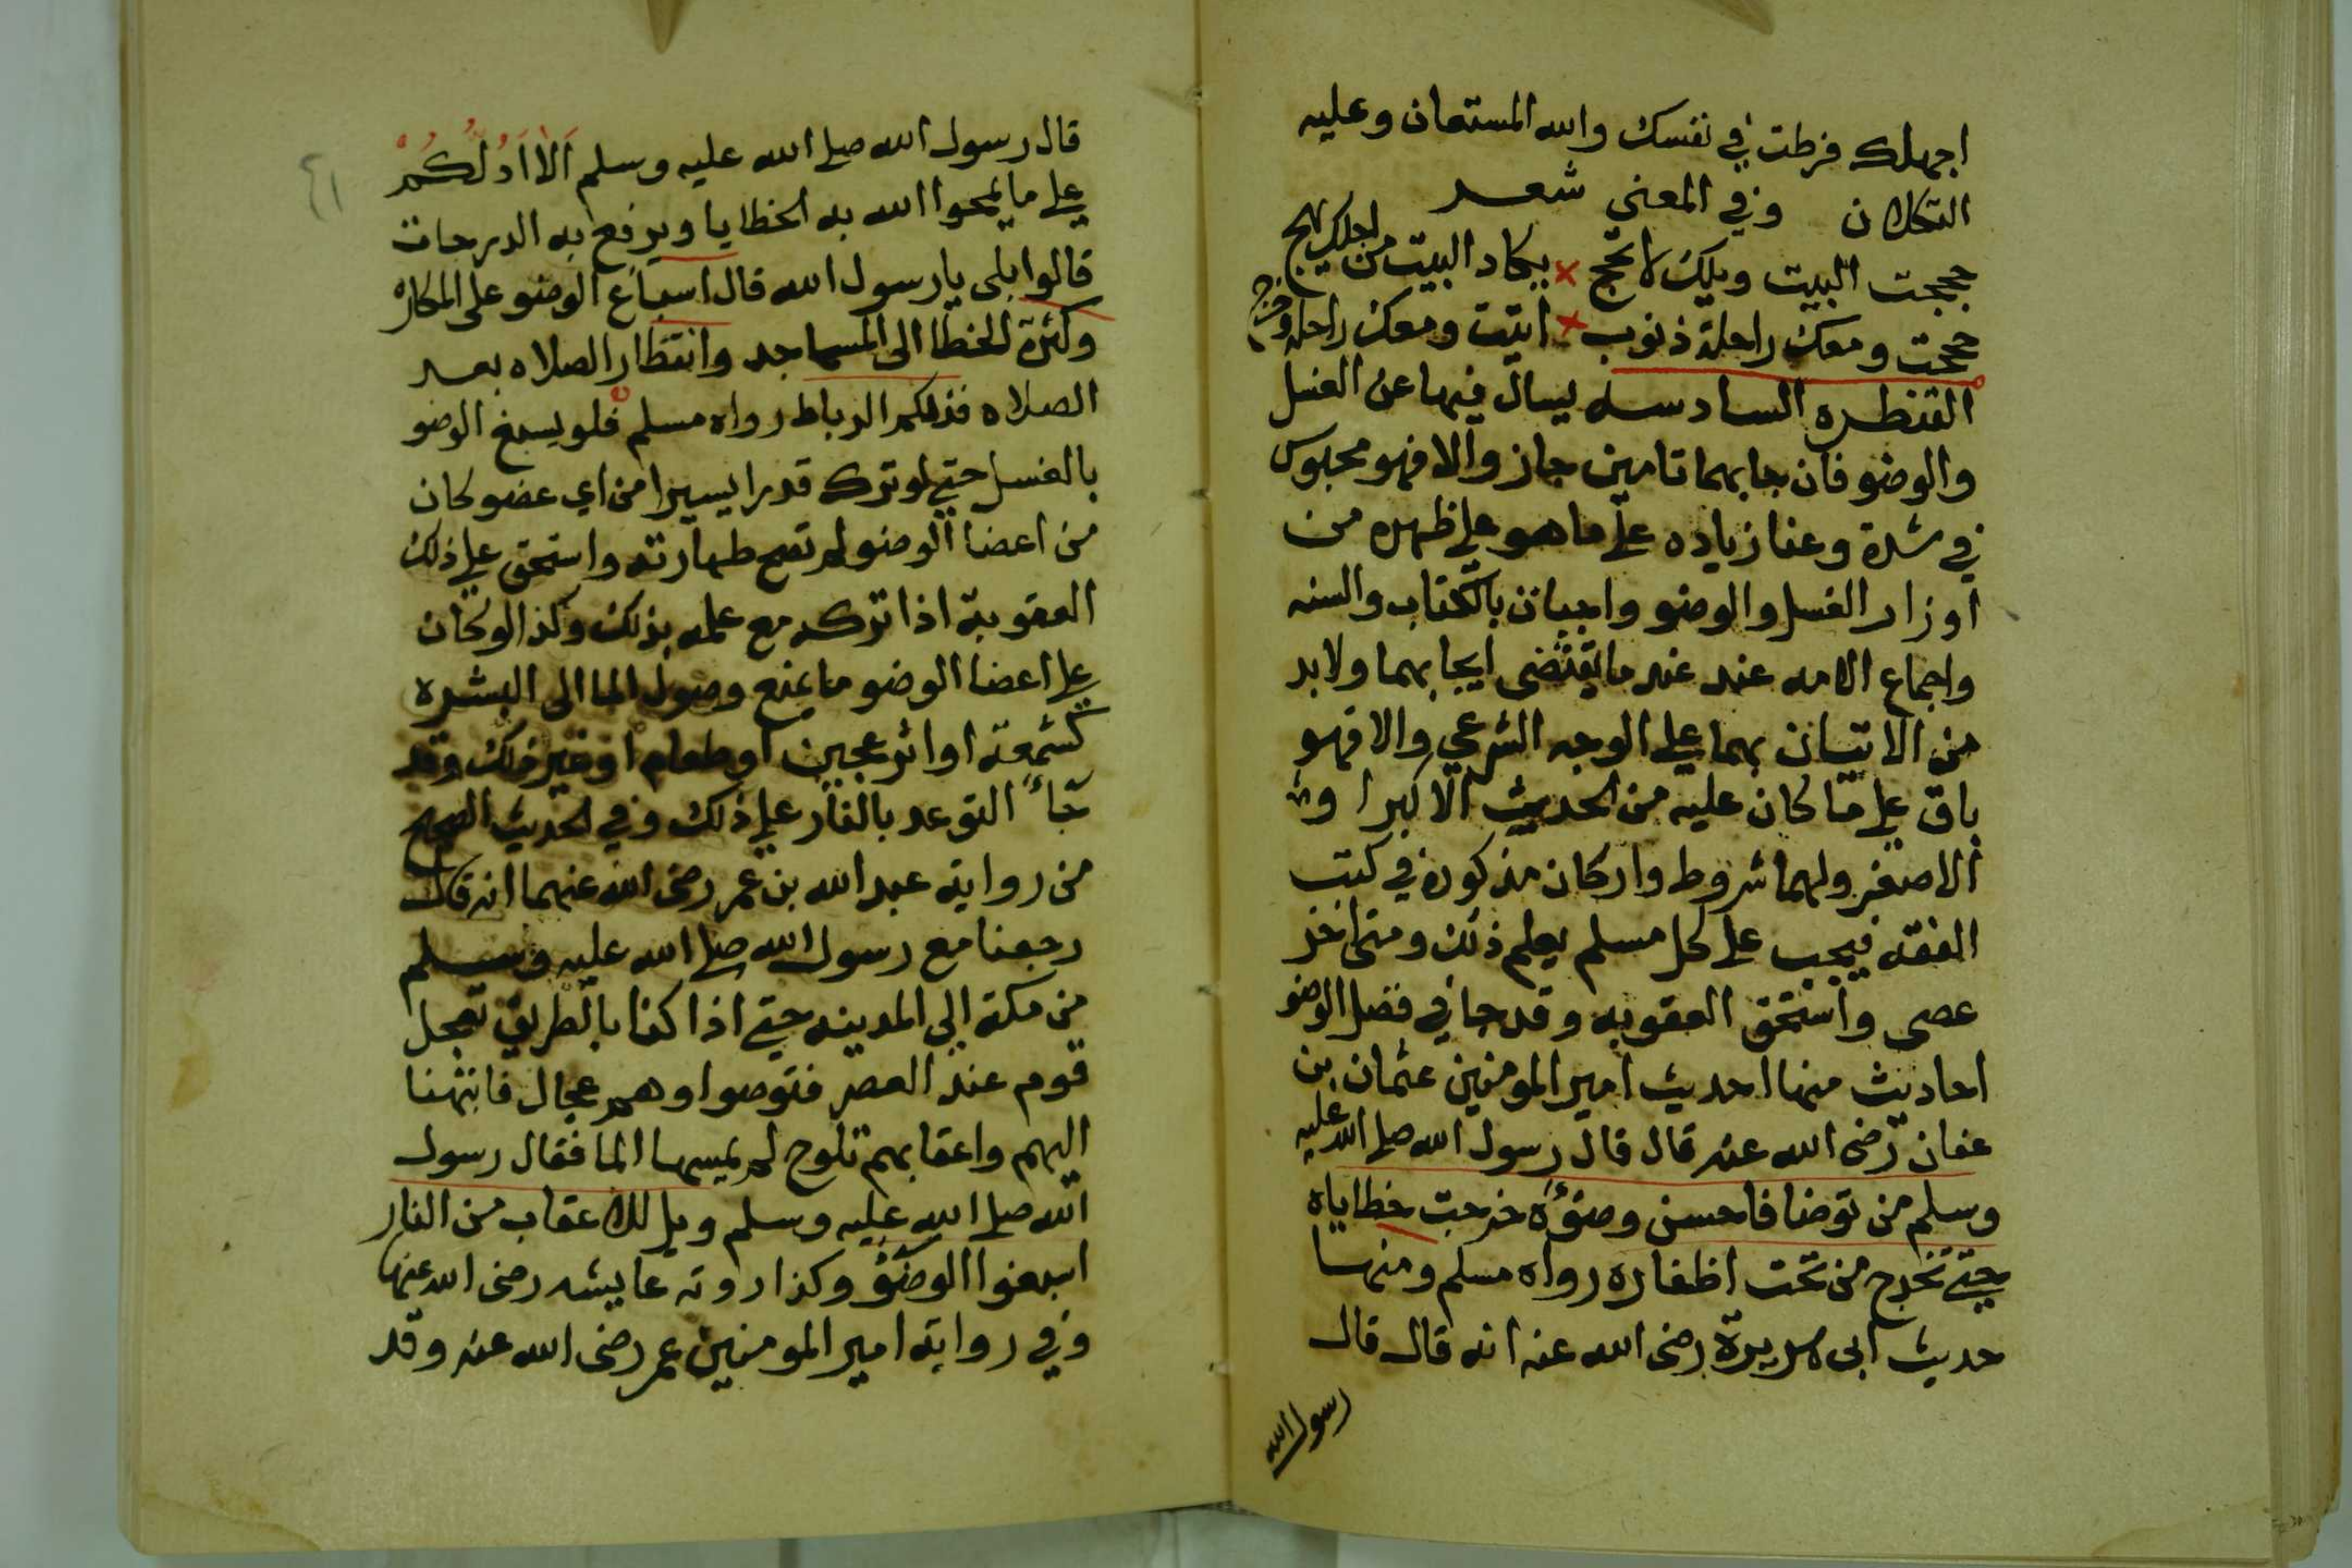 اجهلك فرطت في نفسك والله المستعان وعليه
التكلان وفي المعني شعر
حججت البيت ويلك لا تحج بيكاد البيت من اجلك يهج
حججت ومعك راحلة ذنوب اتيت ومعك راحله وخرج
القنطره السادسه يسال فيها عن الغسل
والوضو فان جا بهما تامين جاز والا فهو محبوس
في شدة وعنا زياده علي ما هو علي ظهره من
اوزار الغسل والوضو واجبان بالكتاب والسنه
واجماع الامه عند عند ما يقتضي ايجابهما ولابد
من الاتيان بهما علي الوجه الشرعي والا فهو
باق علي ما كان عليه من الحديث الاكبر او
الاصغر ولهما شروط واركان مذكورة في كتب
الفقه فيجب علي كل مسلم يعلم ذلك ومتي اخر
عصى واستحق العقوبه وقد جا في فضل الوضو
احاديث منها احديث امير المومنين عثمان بن
عفان رضى الله عنه قال قال رسول الله صلي الله عليه
وسلم من توضا فاحسن وضوءه خرجت خطاياه
حتي تخرج من تحت اظفاره رواه مسلم ومنها
حديث ابى هريرة رضى الله عنه انه قال قال
رسول الله
٤١
قال رسول الله صلي الله عليه وسلم اَلاَ اَدُلُّكُمْ
علي ما يمحوا الله به الخطايا ويرفع به الدرجات
قالوا بلى يا رسول الله قال اسباغ الوضو على المكاره
وكثرة الخطا الى المساجد وانتظار الصلاه بعد
الصلاه فذلكم الرباط رواه مسلم فلو يسبغ الوضو
بالغسل حتي لو ترك قدرا يسيرا من اي عضو كان
من اعضا الوضو لم تصح طهارته واستحق علي ذلك
العقوبة اذا تركه مع علمه بذلك وكذا لو كان
علي اعضا الوضو ما يمنع وصول الما الى البشره
كشمعة او اثر عجين او طعام او غير ذلك وقد
جاء التوعد بالنار علي ذلك وفي الحديث الصحيح
من رواية عبد الله بن عمر رضى الله عنهما انه قال
رجعنا مع رسول الله صلي الله عليه وسلم
من مكة الي المدينه حتي اذا كنا بالطريق تعجل
قوم عند العصر فتوضوا وهم عجال فانتهنا
اليهم واعقابهم تلوح لم يمسها الما فقال رسول
الله صلي الله عليه وسلم ويل للاعقاب من النار
اسبغوا الوضؤ وكذا روته عايشه رضى الله عنها
وفي رواية امير المومنين عمر رضى الله عنه وقد